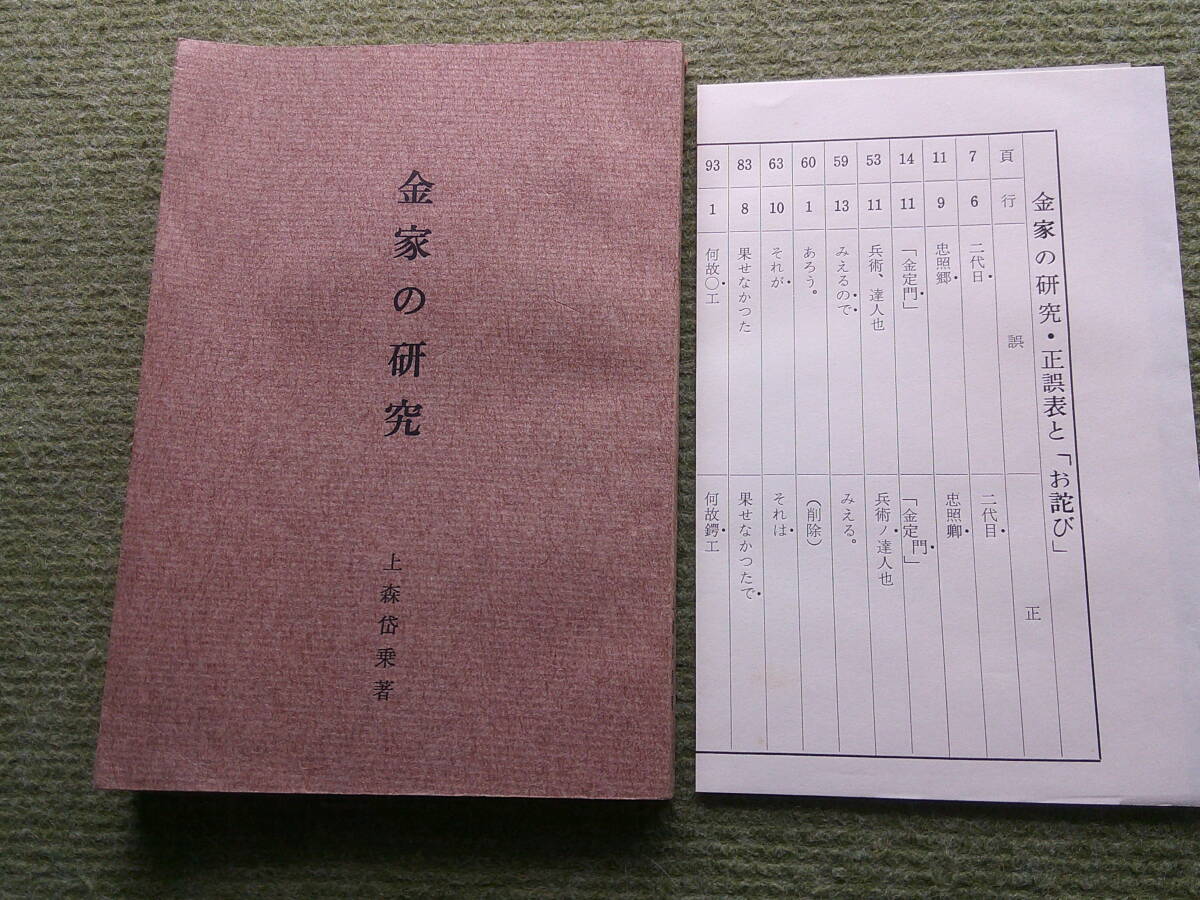 金家の研究
上森岱乗著
金家の研究・正誤表と「お詫び」
頁 行 誤 正
7 6 二代日 二代目
11 9 忠照郷 忠照卿
14 11 「金定門」 「金定門」
53 11 兵術、達人也 兵術ノ達人也
59 13 みえるので みえる。
60 1 あろう。 (削除)
63 10 それが それは
83 8 果せなかつた 果せなかつたで
93 1 何故〇工 何故鍔工